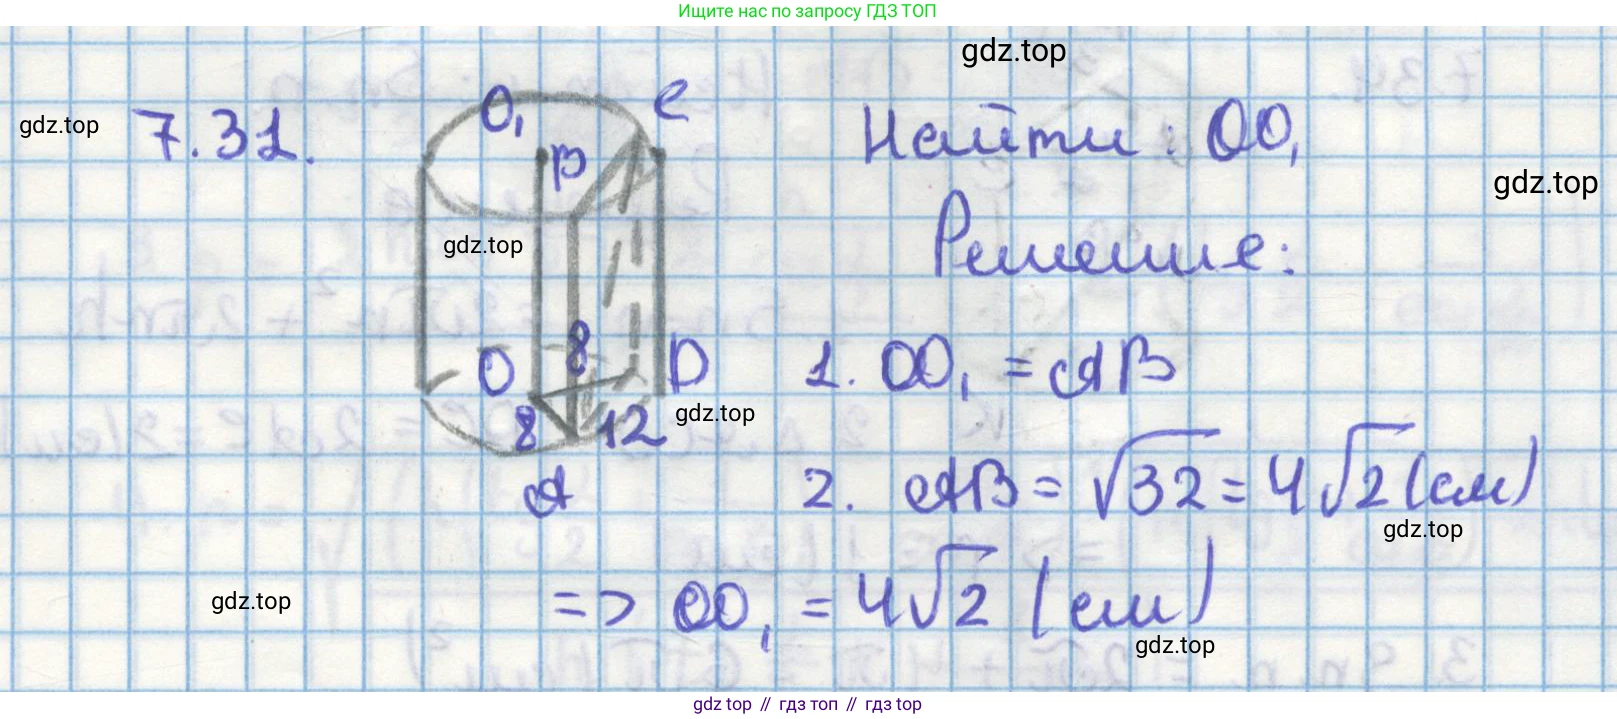 Ищите нас по запросу ГДЗ ТОП
gdz.top
gdz.top
7.31.
O₁
e
р
Найти: OO₁
gdz.top
Решение:
gdz.top
O
8
D
1. OO₁ = AB
8
12
gdz.top
A
2. AB = √32 = 4√2 (см)
gdz.top
gdz.top
=> OO₁ = 4√2 (см)
gdz.top
gdz top // гдз топ // гдз top